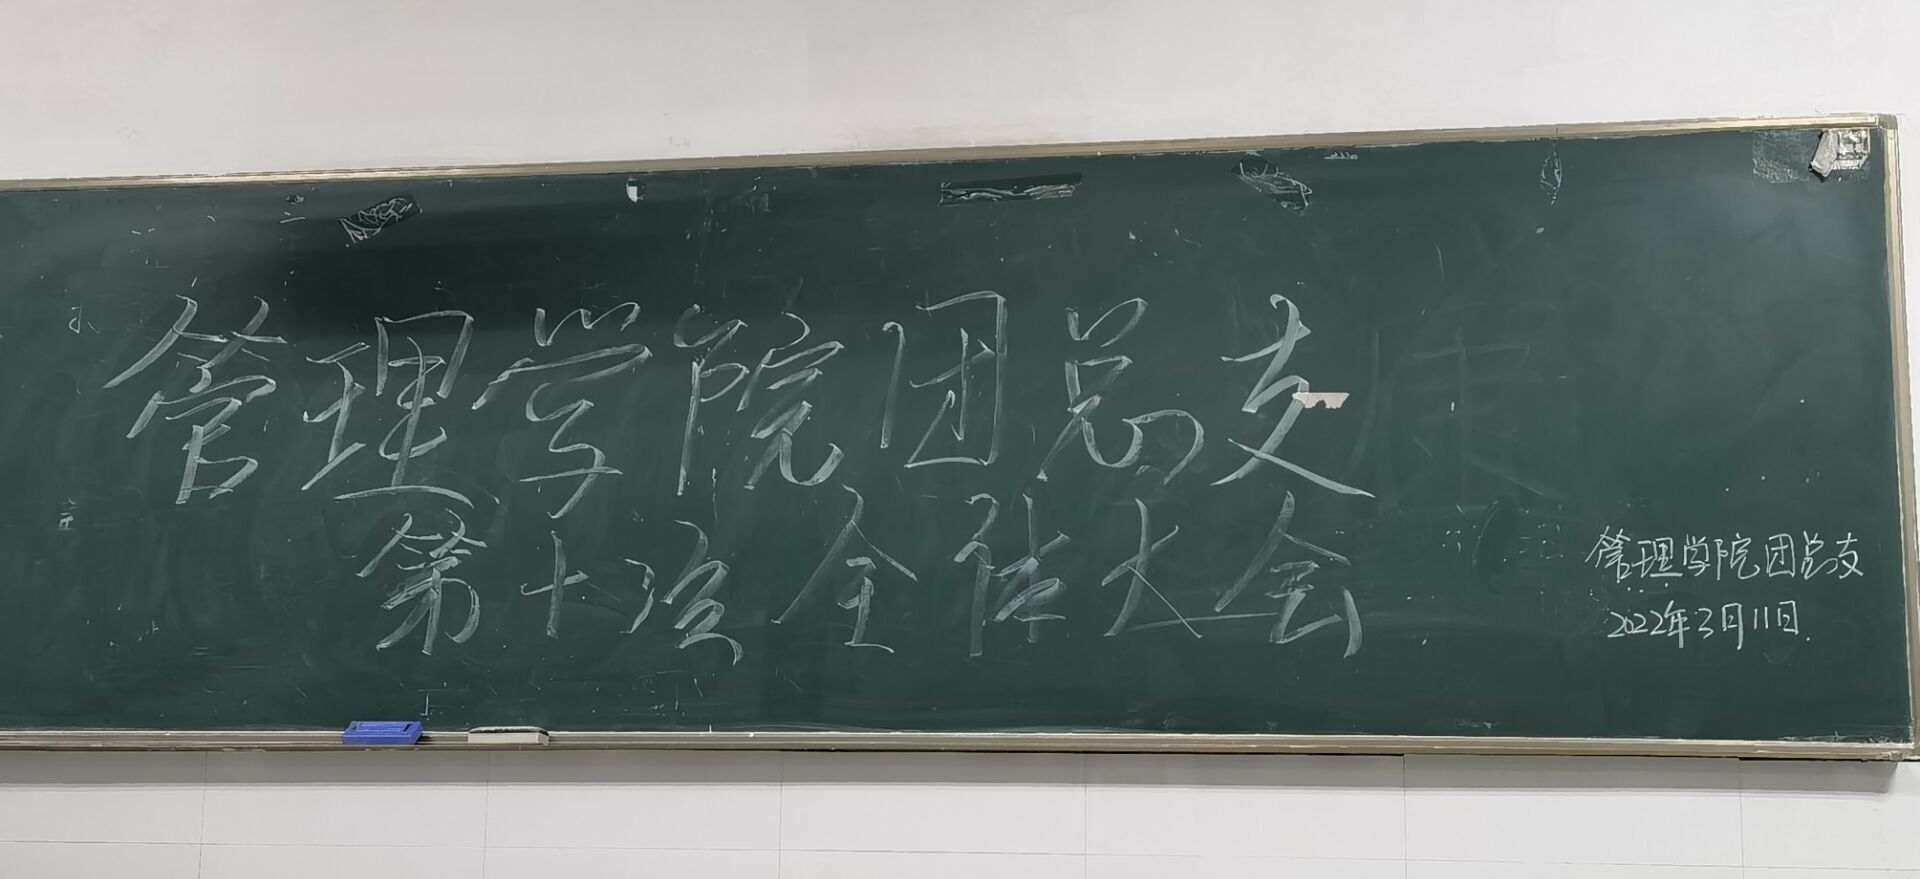 管理学院团总支
第十次全体大会
管理学院团总支
2022年3月11日.